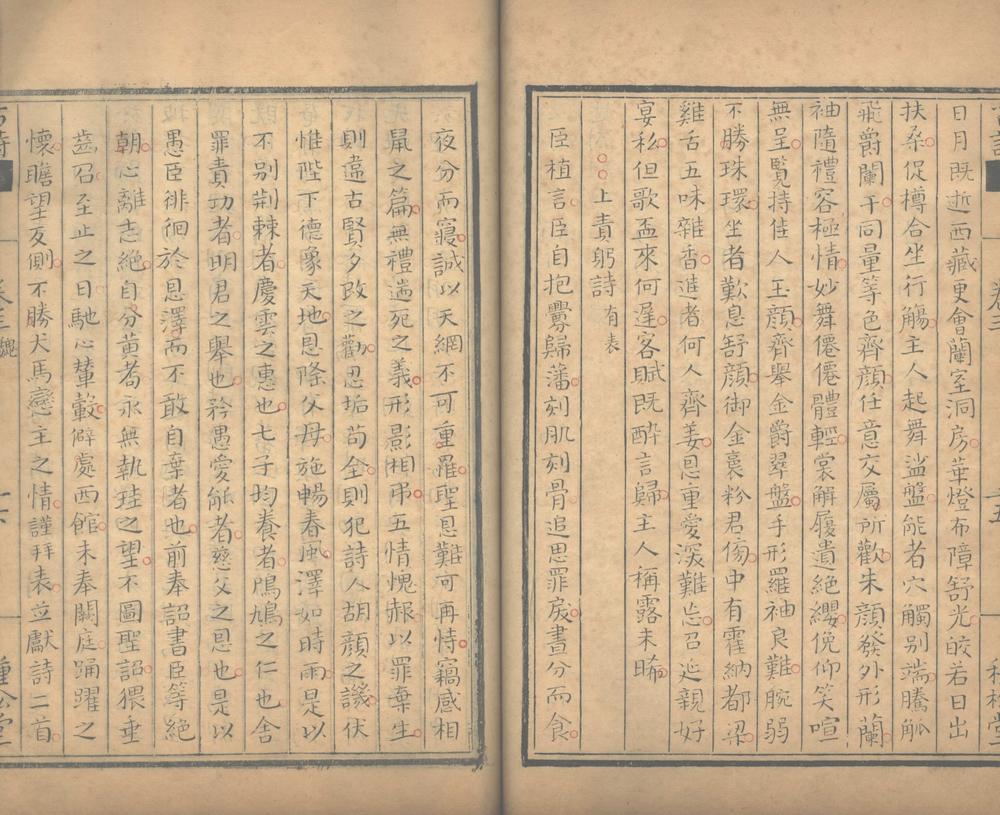 日月既逝西藏更會蘭室洞房華燈布障舒光皎若日出
扶桑促樽合坐行觴主人起舞盤能者穴觸别端騰觚
飛爵闌干同量等色齊顏任意交屬所歡朱顏發外形蘭
袖隨禮容極情妙舞僊僊體輕裳解履遺絕纓俛仰笑喧
無呈覽持佳人玉顏齊舉金爵翠盤手形羅袖良難腕弱
不勝珠環坐者歎息舒顏御金裛粉君傍中有霍納都梁
雞舌五味雜香進者何人齊姜恩重愛深難忘召延親好
宴私但歌盃來何遲客賦既醉言歸主人稱露未晞
上責躬詩有表
臣植言臣自抱釁歸藩刻肌刻骨追思罪戾晝分而食
夜分而寢誠以天網不可重罹聖恩難可再恃竊感相
鼠之篇無禮遄死之義形影相弔五情愧赧以罪棄生
則違古賢夕改之勸忍垢苟全則犯詩人胡顏之譏伏
惟陛下德象天地恩隆父母施暢春風澤如時雨是以
不别荆棘者慶雲之惠也七子均養者鳲鳩之仁也舍
罪責功者明君之舉也矜愚愛能者慈父之恩也是以
愚臣徘徊於恩澤而不敢自棄者也前奉詔書臣等絕
朝心離志絕自分黃耇永無執珪之望不圖聖詔猥垂
齒召至止之日馳心輦轂僻處西館未奉闕庭踊躍之
懷瞻望反側不勝犬馬戀主之情謹拜表並獻詩二首